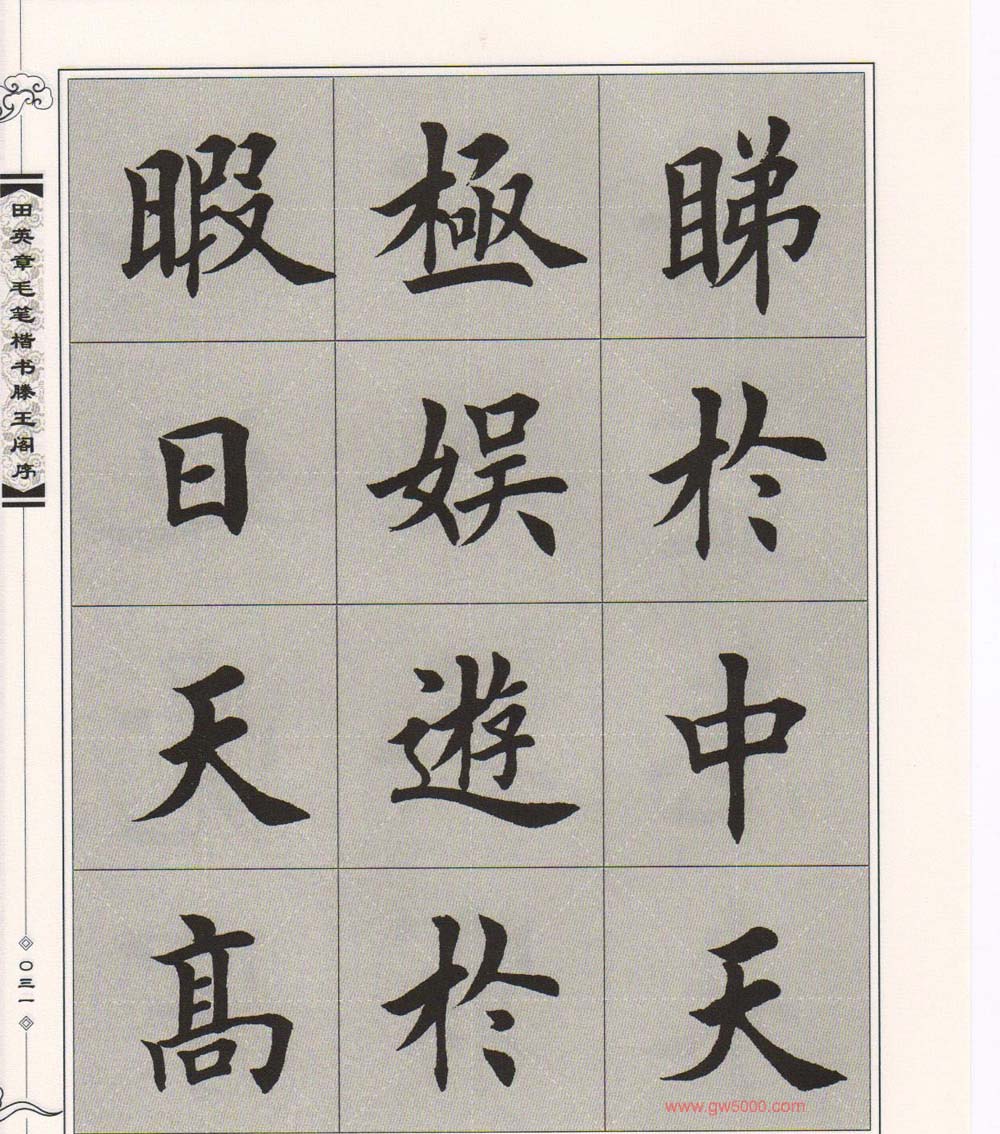 睇於中天
極娱遊於
暇日天髙
田英章毛笔楷书滕王阁序
〇三一
www.gw5000.com